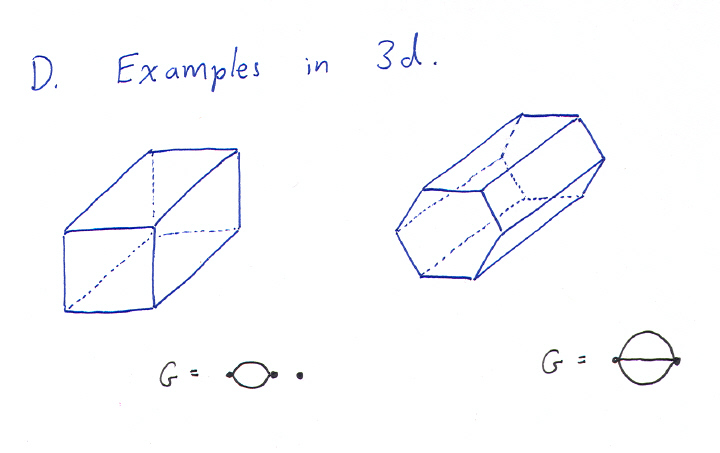 D. Examples in 3d.
G =
G =